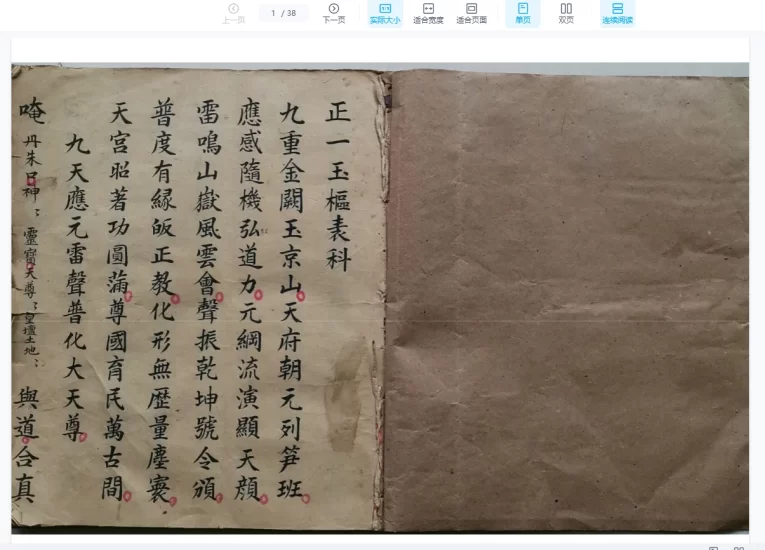 上一页 1 / 38 下一页 实际大小 适合宽度 适合页面 单页 双页 连续阅读
正一玉樞表科
九重金闕玉京山天府朝元列笋班
應感隨機弘道力元綱流演顯天顔
雷鳴山嶽風雲會聲振乾坤號令頒
普度有緣皈正教化形無歷量塵寰
天宫昭著功圓滿尊國育民萬古間
九天應元雷聲普化大天尊
唵丹朱口神靈寶天尊皇壇土地與道合真